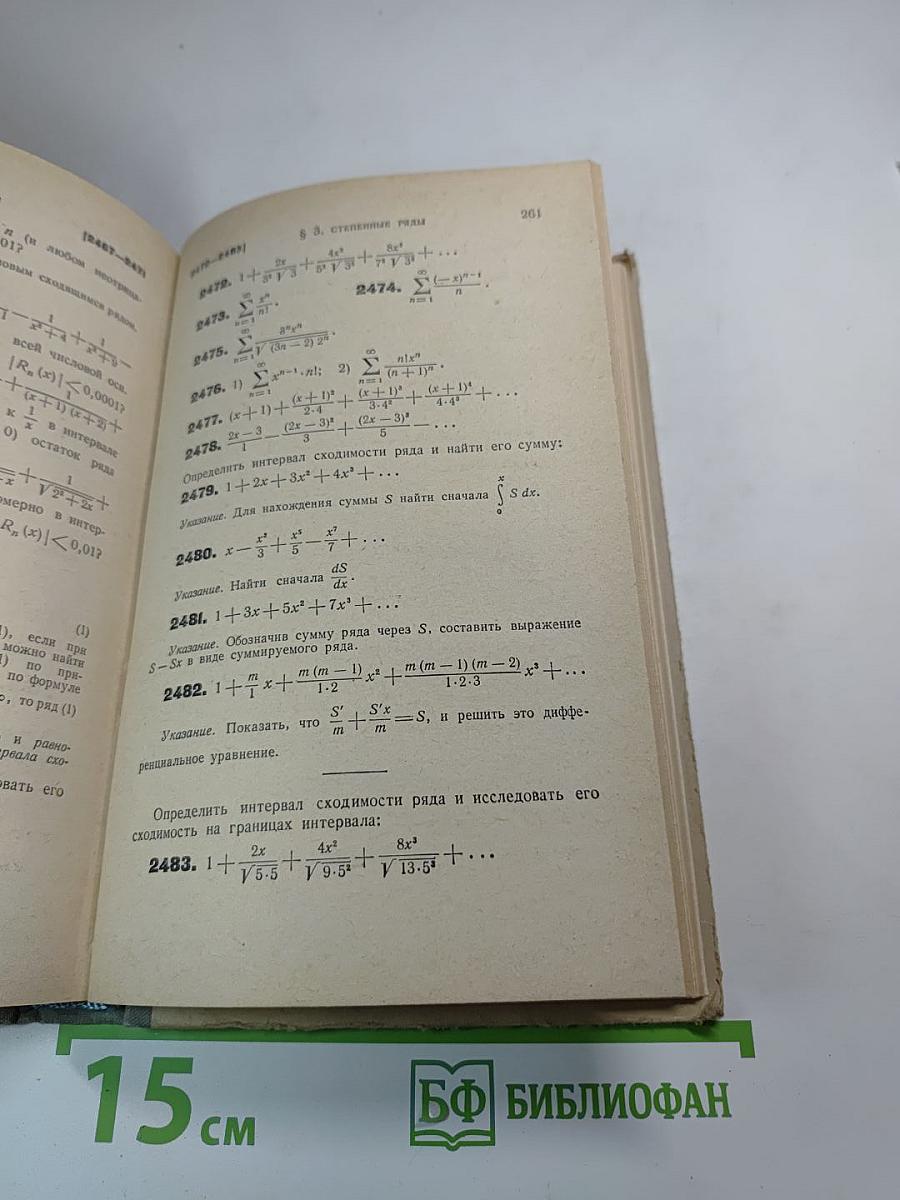 [2467—247]
n (и любом неотрица-
01?
овым сходящимся рядом.
− \frac{1}{x^2+4} + \frac{1}{x^2+9} −
всей числовой оси.
|R_n (x)| < 0,0001?
+ \frac{1}{(x+1)(x+2)} +
к \frac{1}{x} в интервале
0) остаток ряда
+ \frac{1}{\sqrt{2^2+2x}} +
омерно в интер-
R_n (x)| < 0,01?
(1)
1), если при
можно найти
1) по при-
по формуле
то ряд (1)
и равно-
ервала схо-
овать его
§ 3. СТЕПЕННЫЕ РЯДЫ 261
2472. 1 + \frac{2x}{3^2 \sqrt{3}} + \frac{4x^2}{5^2 \sqrt{3^2}} + \frac{8x^3}{7^2 \sqrt{3^3}} + ...
2473. \sum_{n=1}^{\infty} \frac{x^n}{n!}. 2474. \sum_{n=1}^{\infty} \frac{(-x)^{n-1}}{n}.
2475. \sum_{n=1}^{\infty} \frac{3^n x^n}{\sqrt{(3n-2) 2^n}}.
2476. 1) \sum_{n=1}^{\infty} x^{n-1} · n!; 2) \sum_{n=1}^{\infty} \frac{n! x^n}{(n+1)^n}.
2477. (x+1) + \frac{(x+1)^2}{2·4} + \frac{(x+1)^3}{3·4^2} + \frac{(x+1)^4}{4·4^3} + ...
2478. \frac{2x-3}{1} − \frac{(2x-3)^2}{3} + \frac{(2x-3)^3}{5} − ...
Определить интервал сходимости ряда и найти его сумму:
2479. 1 + 2x + 3x^2 + 4x^3 + ...
Указание. Для нахождения суммы S найти сначала \int_0^x S dx.
2480. x − \frac{x^3}{3} + \frac{x^5}{5} − \frac{x^7}{7} + ...
Указание. Найти сначала \frac{dS}{dx}.
2481. 1 + 3x + 5x^2 + 7x^3 + ...
Указание. Обозначив сумму ряда через S, составить выражение
S − Sx в виде суммируемого ряда.
2482. 1 + \frac{m}{1} x + \frac{m (m-1)}{1·2} x^2 + \frac{m (m-1) (m-2)}{1·2·3} x^3 + ...
Указание. Показать, что \frac{S'}{m} + \frac{S'x}{m} = S, и решить это диффе-
ренциальное уравнение.
Определить интервал сходимости ряда и исследовать его
сходимость на границах интервала:
2483. 1 + \frac{2x}{\sqrt{5·5}} + \frac{4x^2}{\sqrt{9·5^2}} + \frac{8x^3}{\sqrt{13·5^3}} + ...
15 см
БФ БИБЛИОФАН